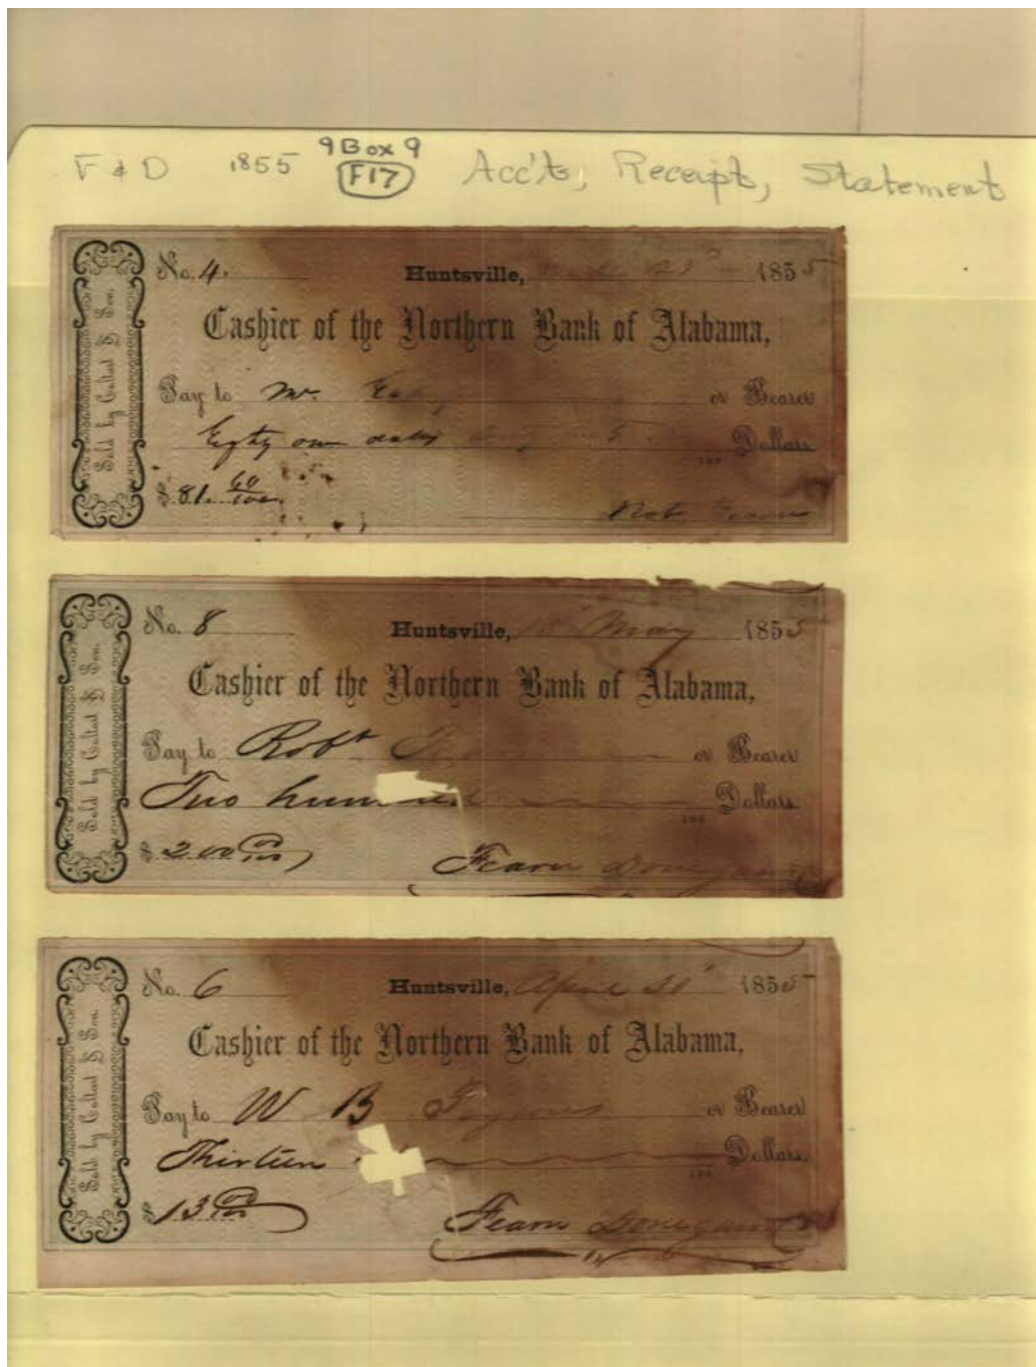 F & D 1855 9 Box 9 Acc'ts, Receipt, Statement
F17
Sold by Coltart & Son.
No. 4. Huntsville, 1855
Cashier of the Northern Bank of Alabama,
Pay to Mr. or Bearer
Eighty one Dollars
$ 81. 60/100
Robt Fearn
Sold by Coltart & Son.
No. 8 Huntsville, May 1855
Cashier of the Northern Bank of Alabama,
Pay to Robt or Bearer
Two hundred Dollars
$ 200 00/100
Fearn Donegan
Sold by Coltart & Son.
No. 6 Huntsville, April 1855
Cashier of the Northern Bank of Alabama,
Pay to W B or Bearer
Thirteen Dollars
$ 13 00/100
Fearn Donegan